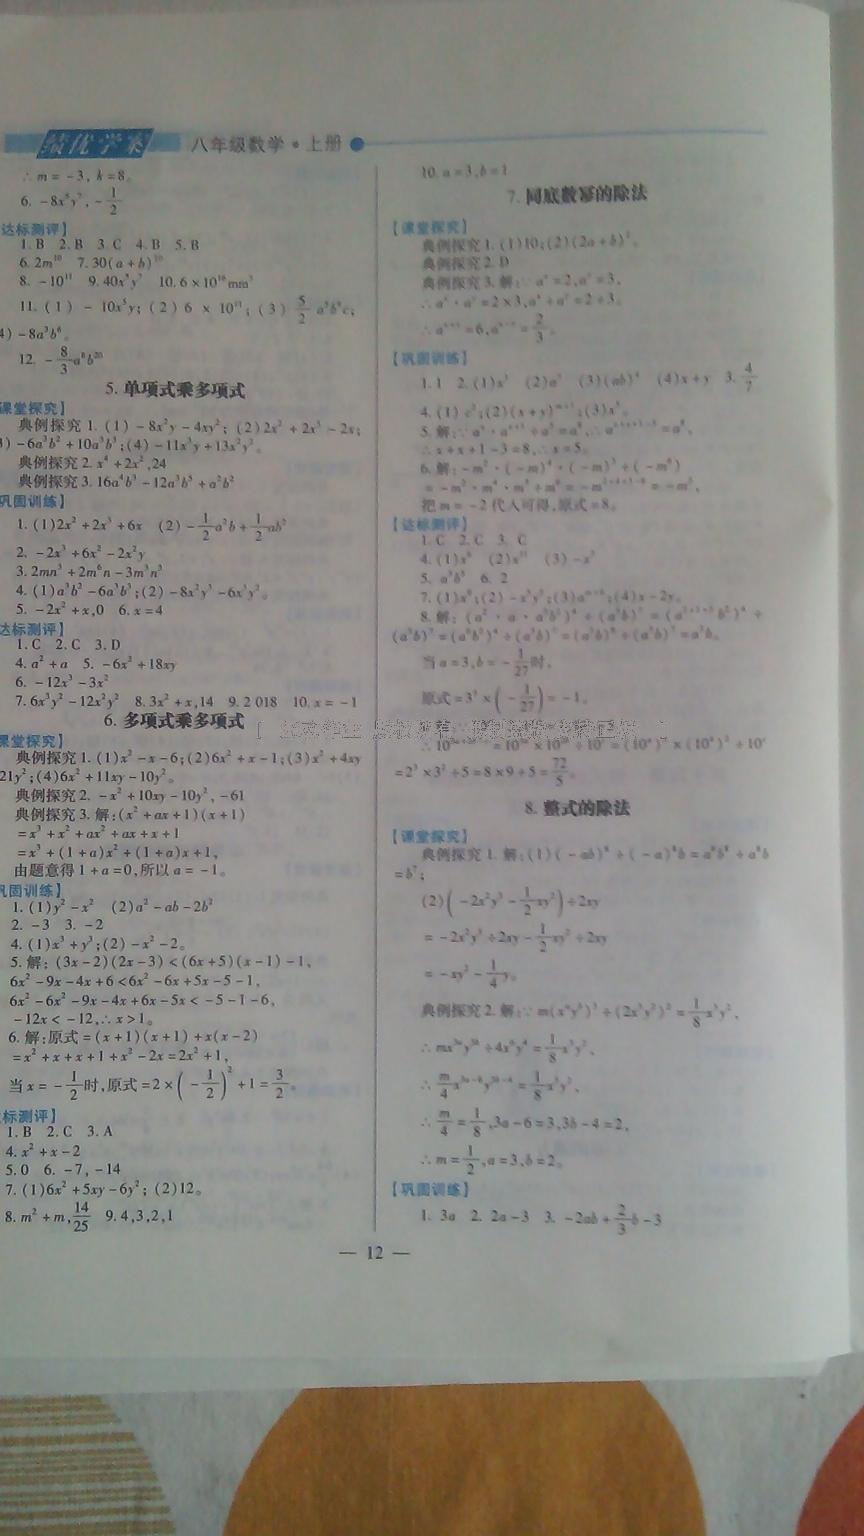 绩优学案 八年级数学·上册
∴m=-3, k=8。
6. -8x⁸y⁷, -1/2
达标测评】
1. B 2. B 3. C 4. B 5. B
6. 2m¹⁰ 7. 30(a+b)¹⁰
8. -10¹¹ 9. 40x⁵y⁷ 10. 6×10¹⁶mm³
11. (1) -10x⁵y; (2) 6×10¹¹; (3) 5/2 a³b⁶c;
4) -8a³b⁶。
12. -8/3a⁸b²⁰
5. 单项式乘多项式
课堂探究】
典例探究1. (1) -8x²y-4xy²; (2)2x²+2x³-2x;
3) -6a³b²+10a³b³;(4)-11x³y+13x²y²。
典例探究2. x⁴+2x²,24
典例探究3. 16a⁴b³-12a³b⁵+a²b²
巩固训练】
1. (1)2x²+2x³+6x (2) -1/2a²b+1/2ab²
2. -2x³+6x²-2x²y
3. 2mn³+2m⁶n-3m³n³
4. (1)a³b²-6a³b³;(2)-8x²y³-6x³y²。
5. -2x²+x,0 6. x=4
达标测评】
1. C 2. C 3. D
4. a²+a 5. -6x³+18xy
6. -12x³-3x²
7. 6x³y²-12x²y² 8. 3x²+x,14 9. 2 018 10. x=-1
6. 多项式乘多项式
课堂探究】
典例探究1. (1)x²-x-6;(2)6x²+x-1;(3)x²+4xy
21y²;(4)6x²+11xy-10y²。
典例探究2. -x²+10xy-10y², -61
典例探究3. 解:(x²+ax+1)(x+1)
=x³+x²+ax²+ax+x+1
=x³+(1+a)x²+(1+a)x+1,
由题意得1+a=0,所以a=-1。
巩固训练】
1. (1)y²-x² (2)a²-ab-2b²
2. -3 3. -2
4. (1)x³+y³;(2)-x²-2。
5. 解: (3x-2)(2x-3)<(6x+5)(x-1)-1,
6x²-9x-4x+6<6x²-6x+5x-5-1,
6x²-6x²-9x-4x+6x-5x<-5-1-6,
-12x<-12,∴x>1。
6. 解:原式=(x+1)(x+1)+x(x-2)
=x²+x+x+1+x²-2x=2x²+1,
当x=-1/2时,原式=2×(-1/2)²+1=3/2。
达标测评】
1. B 2. C 3. A
4. x²+x-2
5. 0 6. -7, -14
7. (1)6x²+5xy-6y²; (2)12。
8. m²+m,14/25 9. 4,3,2,1
10. a=3,b=1
7. 同底数幂的除法
【课堂探究】
典例探究1. (1)10;(2)(2a+b)²。
典例探究2. D
典例探究3. 解:
=6, =2/3。
【巩固训练】
1. 1 2. (1)x³ (2)a³ (3)(ab)⁴ (4)x+y 3. 4/7
4. (1) ;(2)(x+y) ;(3)x⁵。
5. 解:
∴x+x+1-3=8,∴x=5。
6. 解: -m²·(-m)⁴·(-m)³÷(-m⁶)
把m=-2代入可得,原式=8。
【达标测评】
1. C 2. C 3. C
4. (1)x⁶ (2)x¹¹ (3)-x³
5. a³b⁵ 6. 2
当a=3,b=-1/27时,
原式=3³×(-1/27)=-1。
=2³×3²÷5=8×9÷5=72/5。
8. 整式的除法
【课堂探究】
典例探究1. 解:(1)(-ab)⁸÷(-a)⁸b=a⁸b⁸÷a⁸b
=b⁷;
(2)(-2x²y³-1/2xy²)÷2xy
=-2x²y³÷2xy-1/2xy²÷2xy
=-xy²-1/4y。
典例探究2. 解:∵m(xᵃyᵇ)³÷(2x³y²)²=1/8x³y²,
∴mx³ᵃy³ᵇ÷4x⁶y⁴=1/8x³y²,
∴m/4x³ᵃ⁻⁶y³ᵇ⁻⁴=1/8x³y²,
∴m/4=1/8,3a-6=3,3b-4=2,
∴m=1/2,a=3,b=2。
【巩固训练】
1. 3a 2. 2a-3 3. -2ab+2/3b-3
— 12 —